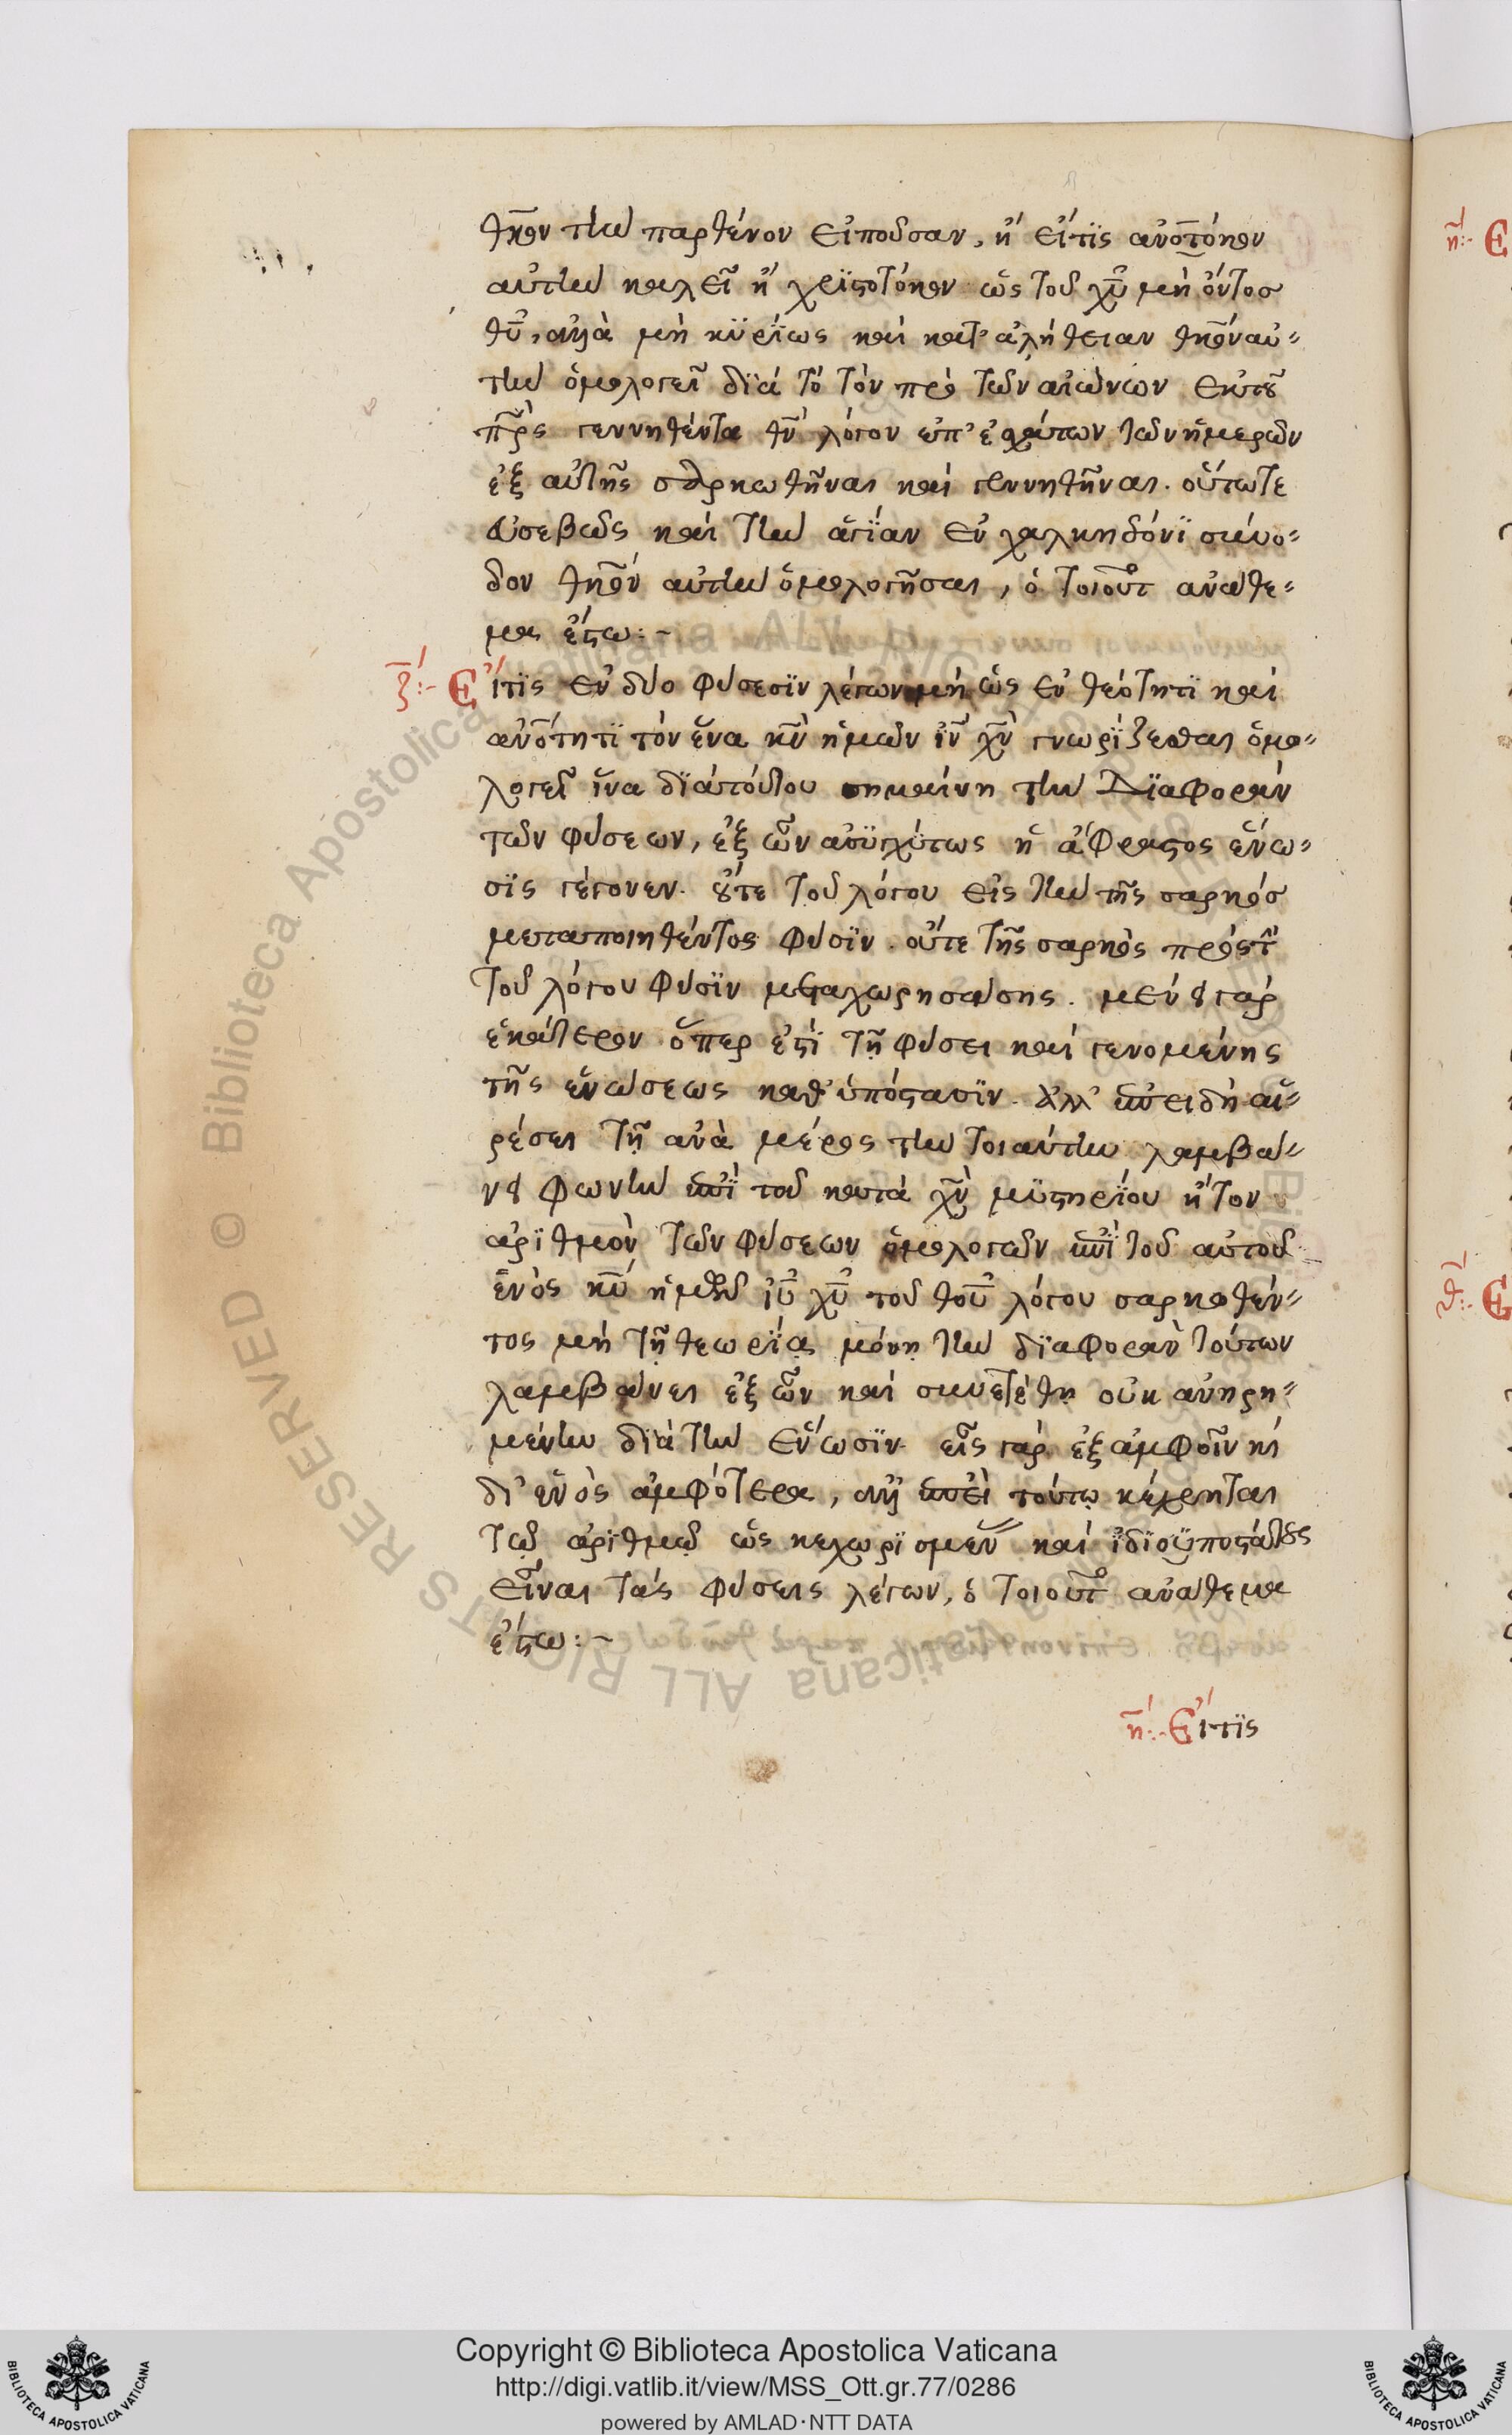 θκον την παρθένον εἰποῦσαν, ἢ εἴτϊς ἀνοτόκον
αὐτὴν καλεῖ ἢ χρϊστοτόκον ὡς τοῦ χυ μὴ ὄντοσ
θυ, ἀλλὰ μὴ κϋρΐως καὶ κατ' ἀλήθειαν θκον αὐ-
τὴν ὁμολογεῖ δϊὰ τὸ τὸν πρὸ τῶν αἰώνων ἐκ τοῦ
πρς γεννηθέντα θν λόγον ἐπ' ἐσχάτων τῶν ἡμερῶν
ἐξ αὐτῆς σαρκωθῆναι καὶ γεννηθῆναι. οὕτω τε
εὐσεβῶς καὶ τὴν ἁγΐαν ἐν χαλκηδόνϊ σύνο-
δον θκον αὐτὴν ὁμολογῆσαι, ὁ τοιοῦτ ἀνάθε-
μα ἔστω:~
ζ:- Εἴτϊς ἐν δύο φύσεσϊν λέγων μὴ ὡς ἐν θεότητϊ καὶ
ἀνότητϊ τὸν ἕνα κν ἡμῶν ιν χν γνωρΐζεσθαι ὁμο-
λογεῖ ἵνα δϊὰ τούτου σημαίνη τὴν Δϊαφορὰν
τῶν φύσεων, ἐξ ὧν ἀσϋγχύτως ἡ ἄφραστος ἕνω-
σϊς γέγονεν. οὔτε τοῦ λόγου εἰς τὴν τῆς σαρκόσ
μεταποιηθέντος φύσϊν. οὔτε τῆς σαρκὸς πρὸς τὴν
τοῦ λόγου φύσϊν μεταχωρησάσης. μένει γὰρ
ἑκάτερον ὅπερ ἐστὶ τῇ φύσει καὶ γενομένης
τῆς ἑνώσεως καθ' ὑπόστασϊν. ἀλλ' ἐπειδὴ αἱ-
ρέσει τῇ ἀνὰ μέρος τὴν τοιαύτην λαμβά-
νει φωνὴν ἐπὶ τοῦ κατὰ χν μϋστηρΐου ἢ τον
ἀρϊθμὸν τῶν φύσεων ὁμολογῶν ἐπὶ τοῦ αὐτοῦ
ἑνὸς κυ ἡμῶν ιυ χυ τοῦ θου λόγου σαρκωθέν-
τος μὴ τῇ θεωρΐᾳ μόνῃ τὴν δϊαφορὰν τούτων
λαμβάνει ἐξ ὧν καὶ συνετέθη οὐκ ἀνῃρη-
μένην δϊὰ τὴν ἕνωσϊν. εἷς γὰρ ἐξ ἀμφοῖν κὶ
δι' ἑνὸς ἀμφότερα, ἀλλ' ἐπεὶ τούτω κέχρηται
τῷ ἀρϊθμῷ ὡς κεχωρϊσμέν καὶ ἰδϊοϋποστάτους
εἶναι τὰς φύσεις λέγων, ὁ τοιοῦτ ἀνάθεμα
ἔστω:~
η:- Εἴτϊς
η:- Ε
θ:- Ε
© Biblioteca Apostolica Vaticana ALL RIGHTS RESERVED
Copyright © Biblioteca Apostolica Vaticana
http://digi.vatlib.it/view/MSS_Ott.gr.77/0286
powered by AMLAD·NTT DATA
BIBLIOTECA APOSTOLICA VATICANA
BIBLIOTECA APOSTOLICA VATICANA